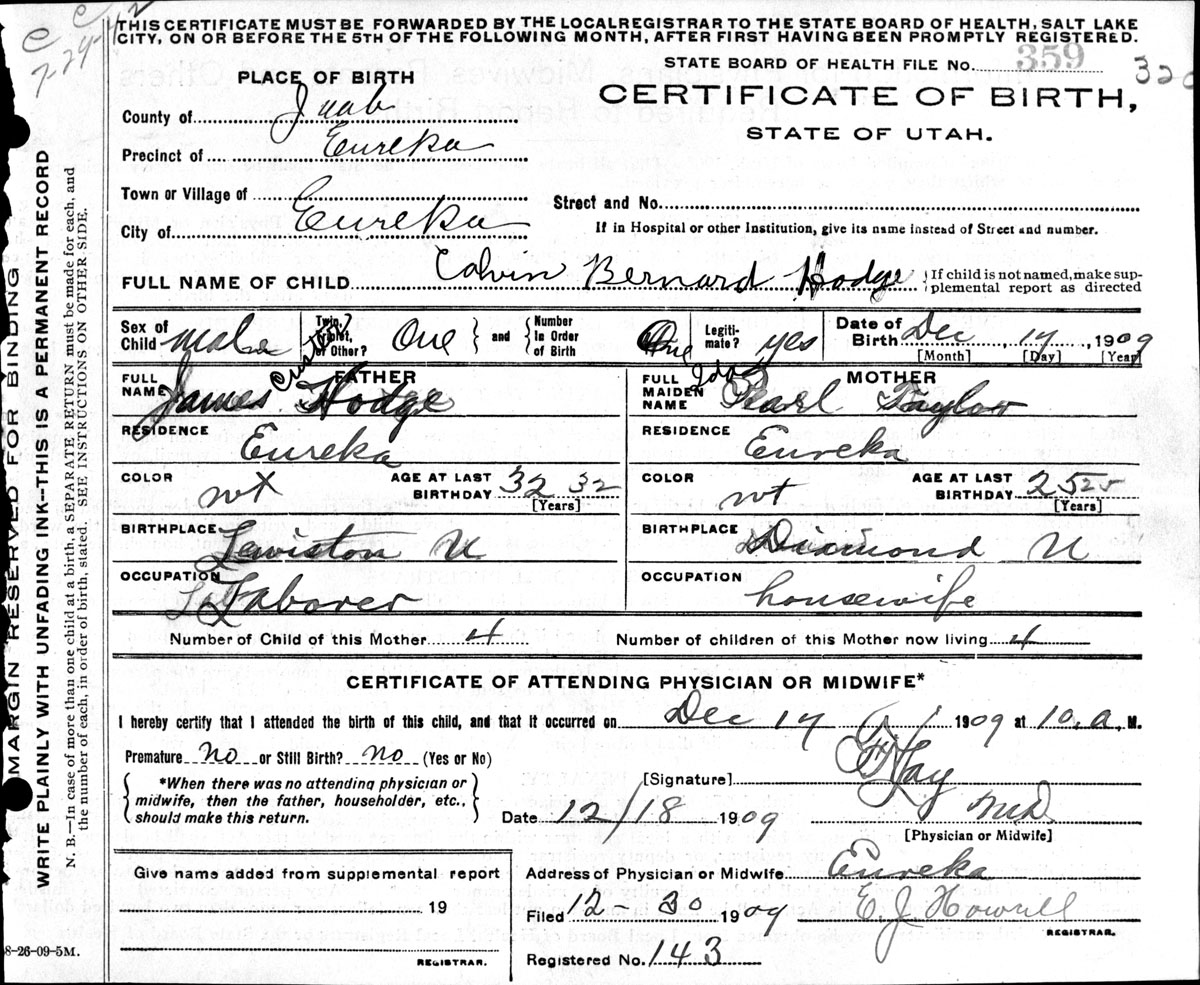 e e
7-24-42
THIS CERTIFICATE MUST BE FORWARDED BY THE LOCAL REGISTRAR TO THE STATE BOARD OF HEALTH, SALT LAKE
CITY, ON OR BEFORE THE 5TH OF THE FOLLOWING MONTH, AFTER FIRST HAVING BEEN PROMPTLY REGISTERED.
STATE BOARD OF HEALTH FILE No. 359
320
PLACE OF BIRTH
CERTIFICATE OF BIRTH,
STATE OF UTAH.
County of Juab
Precinct of Eureka
Town or Village of
Street and No.
City of Eureka
If in Hospital or other Institution, give its name instead of Street and number.
FULL NAME OF CHILD Calvin Bernard Hodge {If child is not named, make sup-
plemental report as directed
Sex of Child male Twin, Triplet, or Other? One and Number In Order of Birth One Legiti-mate? yes Date of Birth Dec 14, 1909
[Month] [Day] [Year]
FATHER
FULL NAME James Hodge
MOTHER
FULL MAIDEN NAME Ida Pearl Taylor
RESIDENCE Eureka
RESIDENCE Eureka
COLOR wt AGE AT LAST BIRTHDAY 32 32 [Years]
COLOR wt AGE AT LAST BIRTHDAY 25 25 [Years]
BIRTHPLACE Lewiston U
BIRTHPLACE Diamond U
OCCUPATION Laborer
OCCUPATION housewife
Number of Child of this Mother 4 Number of children of this Mother now living 4
CERTIFICATE OF ATTENDING PHYSICIAN OR MIDWIFE*
I hereby certify that I attended the birth of this child, and that it occurred on Dec 14 1909 at 10, a. M.
Premature no or Still Birth? no (Yes or No)
*When there was no attending physician or
midwife, then the father, householder, etc.,
should make this return.
[Signature]
Date 12/18 1909 MD
[Physician or Midwife]
Give name added from supplemental report
19
REGISTRAR.
Address of Physician or Midwife Eureka
Filed 12-30 1909 E. J. Howell
REGISTRAR.
Registered No. 143
8-26-09-5M.
MARGIN RESERVED FOR BINDING
WRITE PLAINLY WITH UNFADING INK--THIS IS A PERMANENT RECORD
N. B.—In case of more than one child at a birth, a SEPARATE RETURN must be made for each, and
the number of each, in order of birth, stated. SEE INSTRUCTIONS ON OTHER SIDE.